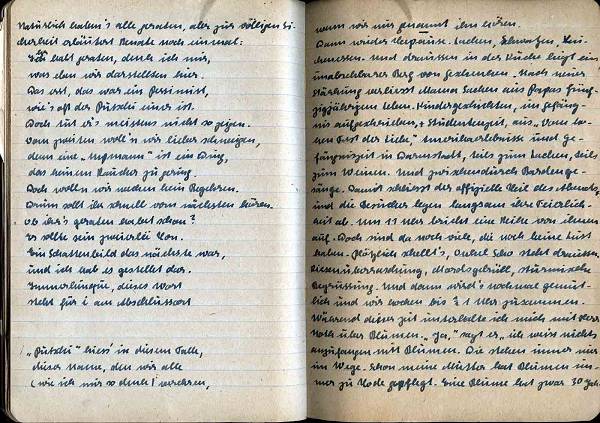 Natürlich haben's alle geraten, aber zur völligen Si-
cherheit erläutert Renate noch einmal:
Ihr habt geraten, denk ich mir,
was eben wir darstellten hier.
Das erst, das war ein Pessimist,
wie's oft der Putski einer ist.
Doch tut er's meistens nicht so zeigen.
Vom zweiten woll'n wir lieber schweigen,
denn eine "Hofmann" ist ein Ding,
das keinem Raucher zu gering.
Doch woll'n wir weiter kein Begehren.
Drum sollt ihr schnell vom nächsten hören.
Ob ihr's geraten habet schon?
Es sollte sein zweierlei Ton.
Ein Schattenbild das nächste war,
und ich hab es gestellt dar.
dieses Wort
steht für i am Abschlussort
"Putski" hiess' in diesem Falle,
dieser Name, den wir alle
(wie ich mir so denk!) verehren,
wenn wir nur genannt ihn hören.
Dann wieder Lachen, Schwatzen,
Und draussen in der Küche liegt ein
unabsehbarer Berg von Nach neuer
Stärkung verliest Mama Sachen aus Papas fünf-
zigjährigem Leben. Kindergeschichten, im Gefäng-
nis aufgeschrieben, + Studentenzeit, aus "Vom lo-
sen Fest der Liebe," Amerikaerlebnisse und Ge-
fängniszeit in Darmstadt, teils zum Lachen, teils
zum Weinen. Und zwischendurch
sänge. Damit schliesst der offizielle Teil des Abends,
und die Gesichter legen langsam ihre Feierlich-
keit ab. Um 11 Uhr bricht eine Reihe von ihnen
auf. Doch sind da noch viele, die noch keine Lust
haben. Plötzlich schellt's, Onkel steht draussen.
Riesenüberraschung, Mordsgebrüll, stürmische
Begrüssung. Und dann wird's nochmal gemüt-
lich und wir hocken bis 1 Uhr zusammen.
Während dieser Zeit unterhielte ich mich mit Herr
Noth über Blumen. "Ja," sagt er, "ich weiss nichts
anzufangen mit Blumen. Die stehen immer nur
im Wege. Schon meine Mutter hat Blumen im-
mer zu Tode gepflegt. Eine Blume hat zwar 30 Jah-